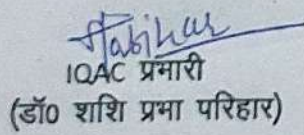 IQAC प्रभारी
(डॉ0 शशि प्रभा परिहार)